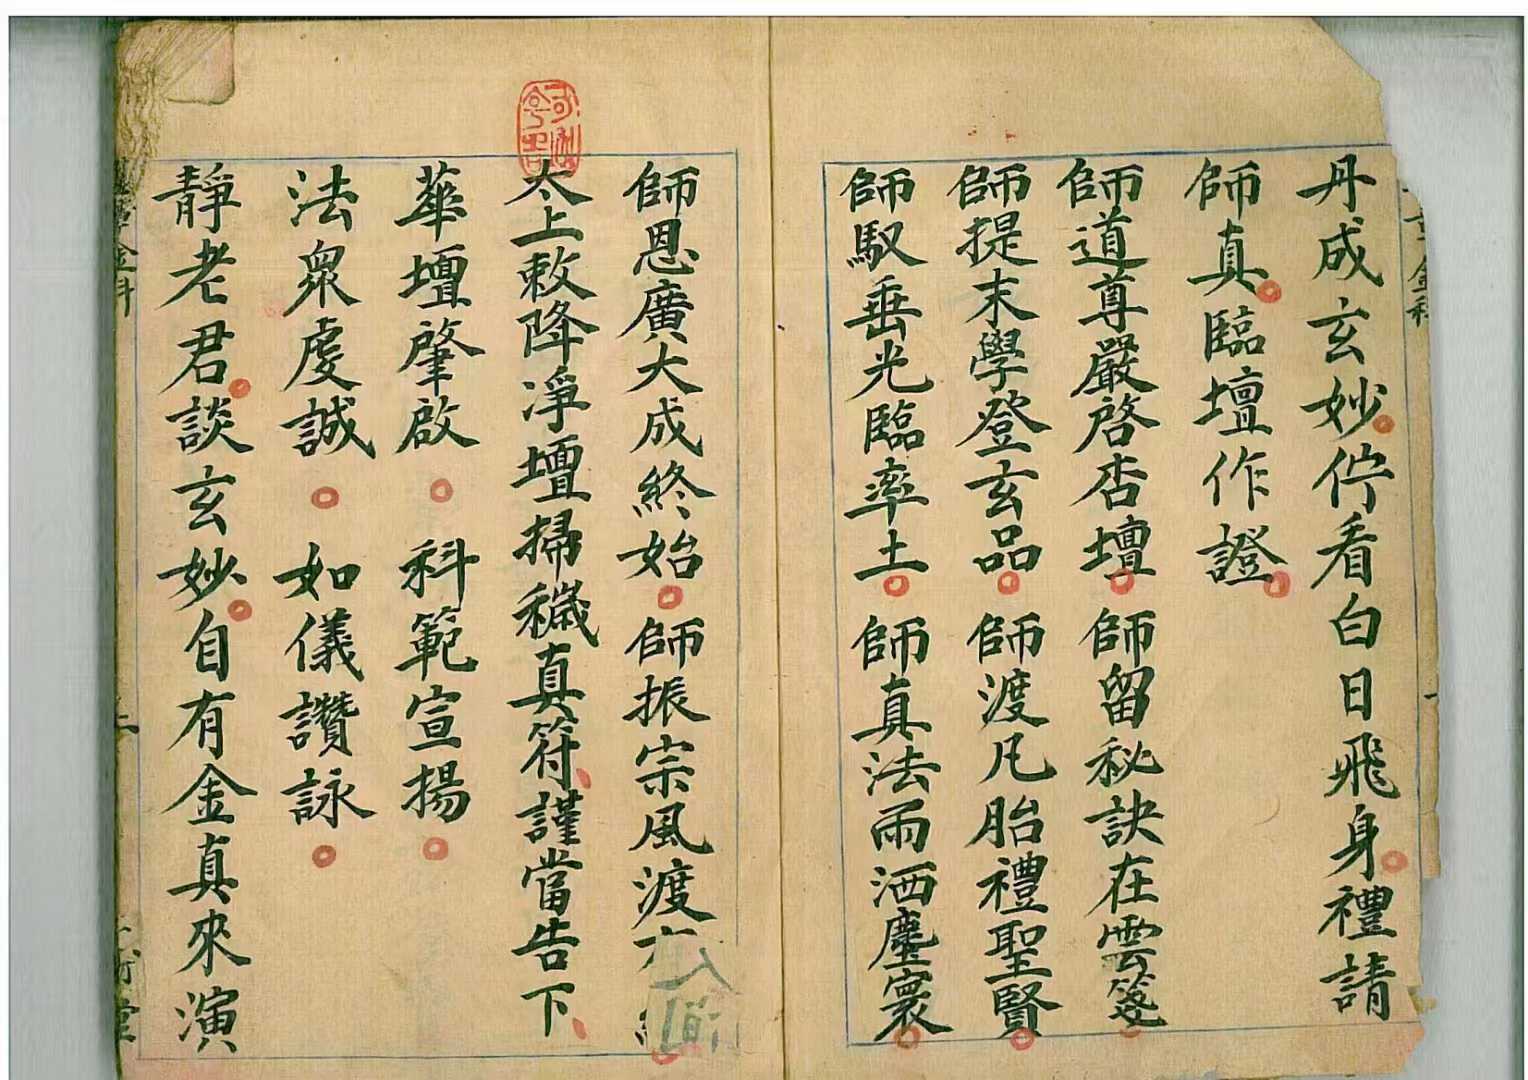 丹成玄妙佇看白日飛身禮請
師真臨壇作證
師道尊嚴啓杏壇師留秘訣在雲箋
師提末學登玄品師渡凡胎禮聖賢
師馭垂光臨率土師真法雨洒塵寰
師恩廣大成終始師振宗風渡
太上敕降淨壇掃穢真符謹當告下
華壇肇啟科範宣揚
法眾虔誠如儀讚詠
靜老君談玄妙自有金真來演